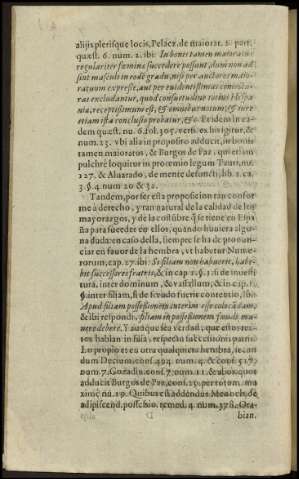 alijs plerisque locis, Pelaez, de maiorat. 2. part.
quæst. 6. num. 2. ibi: In bonis tamen maioratus
regulariter fœmina succedere possunt, dum non ad
sint masculi in eodẽ gradu, nisi per auctores maio-
ratuum expresè, aut per euidentissimas coniectu-
ras excludantur, quod consuetudine totius Hispa-
niæ, receptissimum est, & omnibus notum, & iure
etiam ista conclusio probatur, &c. Et idem in ea-
dem quæst. nu. 6. fol. 305. vers. ex his igitur, & de
num. 23. vbi alia in proposito adducit, in bonis
tamen maioratus, & Burgos de Paz, qui etiam
pulchrè loquitur in proemio legum Tauri, nu.
127. & Aluarado, de mente defuncti, lib. 2. ca.
3. §. 4. num. 20. & 32.
Tandem, por ser esta proposicion tan confor
me a derecho, y tan natural de la calidad de los
mayorazgos, y de la costũbre q̃ se tiene en Espa
ña para suceder en ellos, quando huuiera algu-
na duda: en caso della, siempre se ha de pronun-
ciar en fauor de la hembra, vt habetur Nume-
rorum, cap. 27. ibi: Si filium non habuerit, habe-
bit successores fratres, & in cap. 1. §. 1. si de inuesti
tura, inter dominum, & vasallum, & in cap. 1.
§. inter filiam, si de feudo fuerit contentio, ibi:
Apud filiam possessionem interim esse dicẽdam,
& ibi respondi, filiam in possessionem feudi ma-
nere debere. Y aunque sea verdad, que estos tex-
tos hablan in filia, respectu successionis patris.
Lo propio es en otra qualquiera hembra, secun
dum Decium, cons. 494. num. 9. & cons. 517.
num. 7. Gozadin, cons. 7. num. 11. & alios, quos
adducit Burgos de Paz, cons. 29. per totum, ma
ximè nu. 19. Quibus est addendus Menoch. de
adipiscend. poss. chio. remed. 4. num. 378. Ora-
D bian.